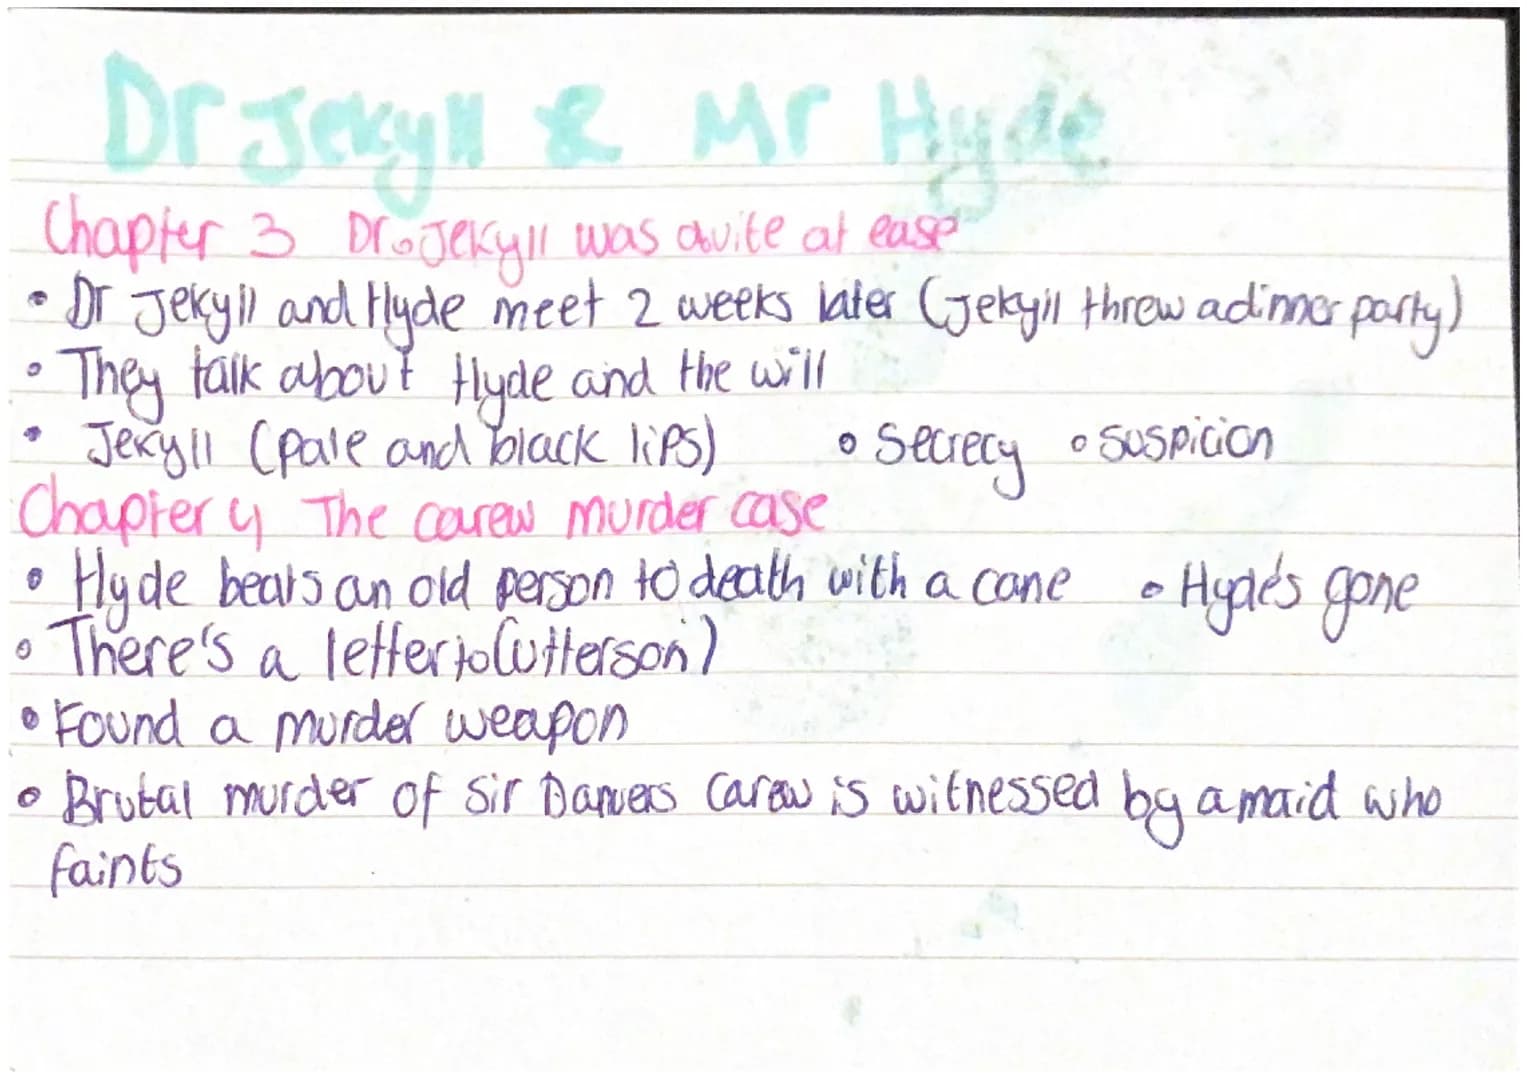 Dr Jekyll & Mr Hyde
Chapter 3 Dr. Jekyll was quite at ease
• Dr Jekyll and Hyde meet 2 weeks later (Jekyll threw a dinner party)
• They talk about Hyde and the will
• Jekyll (pale and black lips) • Secrecy • suspicion
Chapter 4 The carew murder case
• Hyde beats an old person to death with a cane • Hyde's gone
• There's a letter to (utterson)
• Found a murder weapon
• Brutal murder of Sir Danvers Carew is witnessed by a maid who
faints